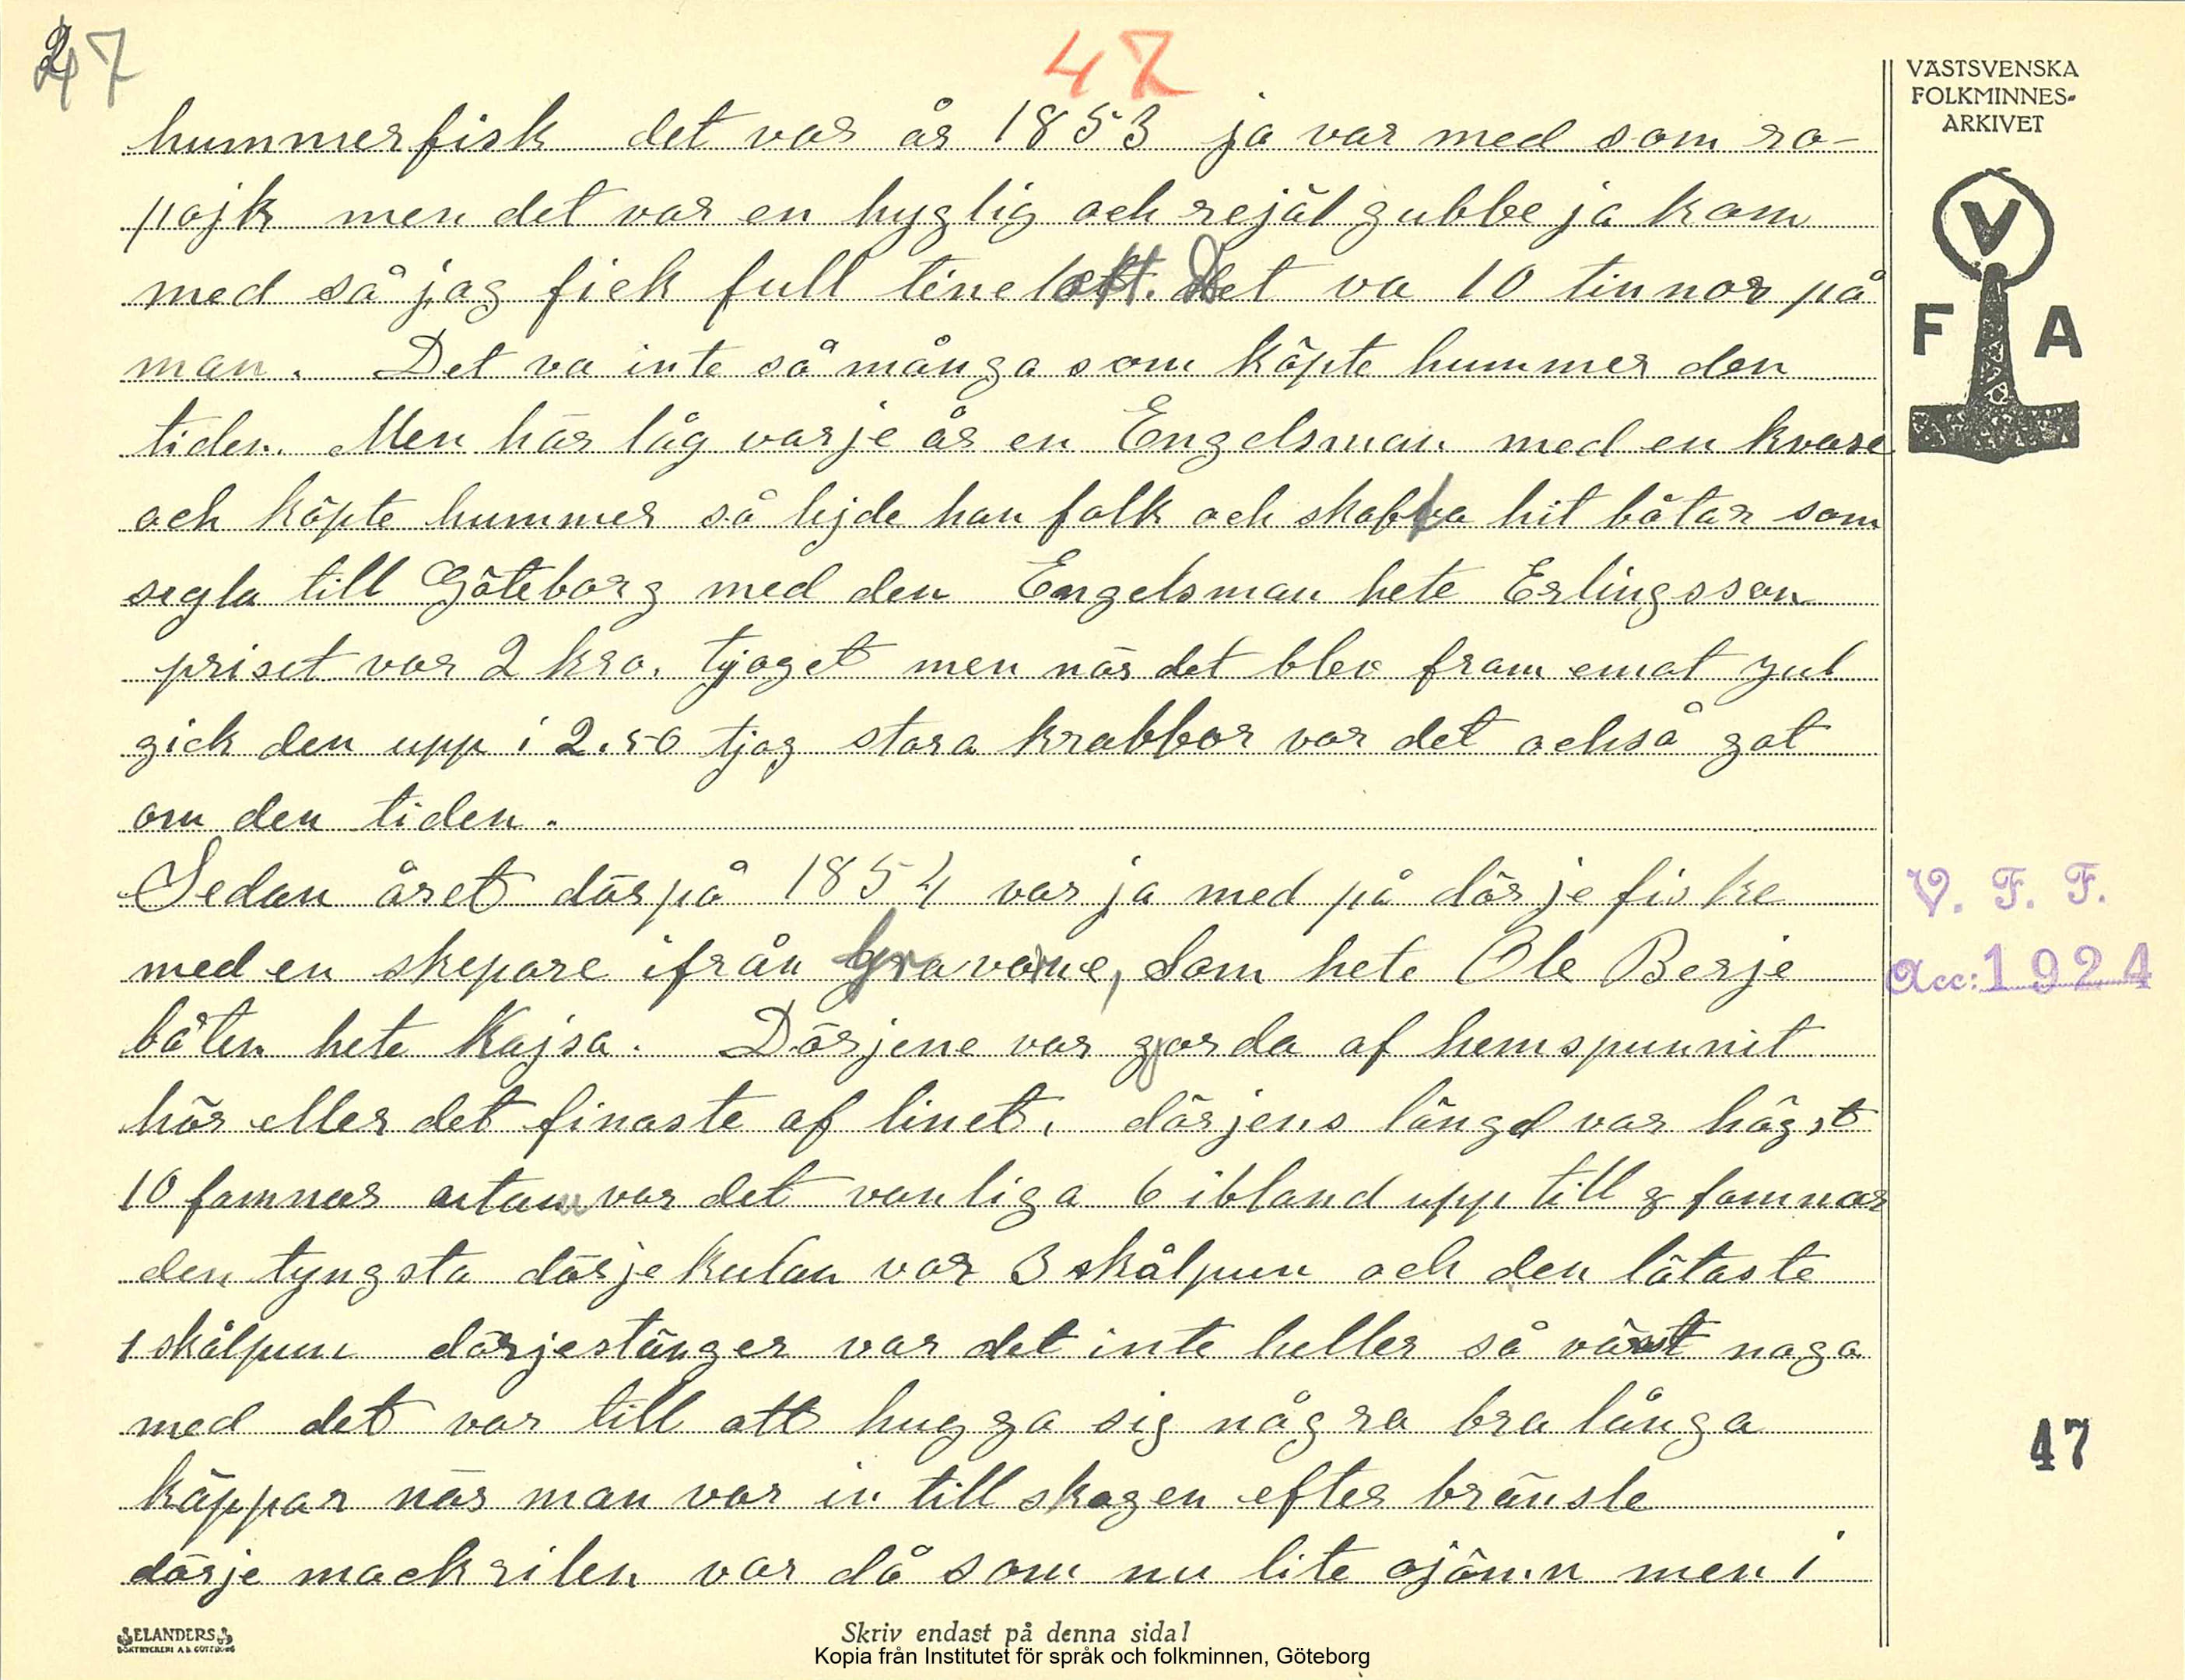 47
47
hummerfisk det var år 1853 ja var med som ro-
pojk men det var en hyglig och rejäl gubbe ja kom
med så jag fick full tinelott. Det va 10 tinnor på
man. Det va inte så många som köpte hummer den
tiden. Men här låg varje år en Engelsman med en kvase
och köpte hummer så lejde han folk och skaffa hit båtar som
segla till Göteborg med den Engelsman hete Erlingsson
priset var 2 kro. tjoget men när det blev fram emot jul
gick den upp i 2.50 tjog stora krabbor var det också got
om den tiden.
Sedan året därpå 1854 var ja med på dörje fiske
med en skepare ifrån Gravarne, Som hete Ole Berje
båten hete Kajsa. Dörjene var gjorda af hemspunnit
hör eller det finaste af linet. dörjens längd var högst
10 famnar utan var det vanliga 6 ibland upp till 8 famnar
den tyngsta dörje kulan var 3 skålpun och den lätaste
1 skålpun dörjestänger var det inte heller så värst noga
med det var till att hugga sig några bra långa
käppar när man var in till skogen efter bränsle
dörje mackrilen var då som nu lite ojämn men i
VÄSTSVENSKA
FOLKMINNES-
ARKIVET
V
F A
V. F. F.
Acc: 1924
47
ELANDERS
BOKTRYCKERI A.B. GÖTEBORG
Skriv endast på denna sida!
Kopia från Institutet för språk och folkminnen, Göteborg